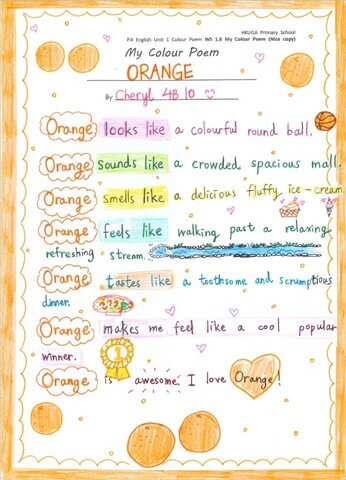 HKUGA Primary School
P.4 English Unit 1 Colour Poem WS 1.8 My Colour Poem (Nice copy)
My Colour Poem
ORANGE
By Cheryl 4B 10
Orange looks like a colourful round ball.
Orange sounds like a crowded spacious mall.
Orange smells like a delicious fluffy ice-cream
Orange feels like walking past a relaxing
refreshing stream.
Orange tastes like a toothsome and scrumptious
dinner.
Orange makes me feel like a cool popular
winner.
1
Orange is awesome. I love Orange!